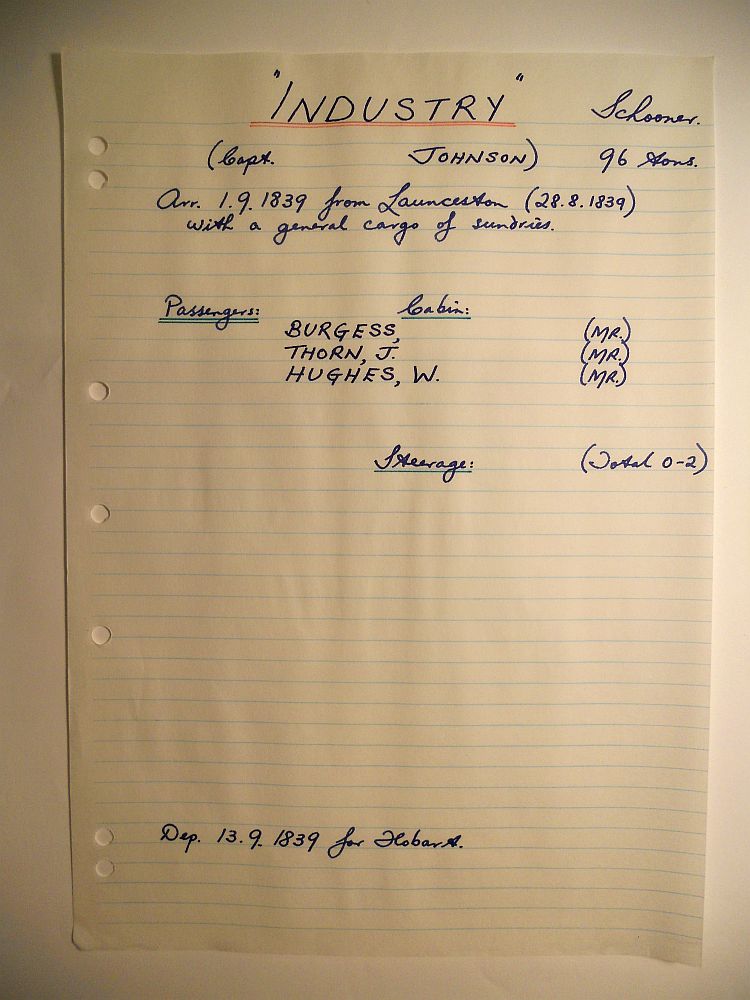 "INDUSTRY" Schooner.
(Capt. JOHNSON) 96 tons.
Arr. 1.9.1839 from Launceston (28.8.1839)
with a general cargo of sundries.
Passengers: Cabin:
BURGESS, (MR.)
THORN, J. (MR.)
HUGHES, W. (MR.)
Steerage: (Total 0-2)
Dep. 13.9.1839 for Hobart.